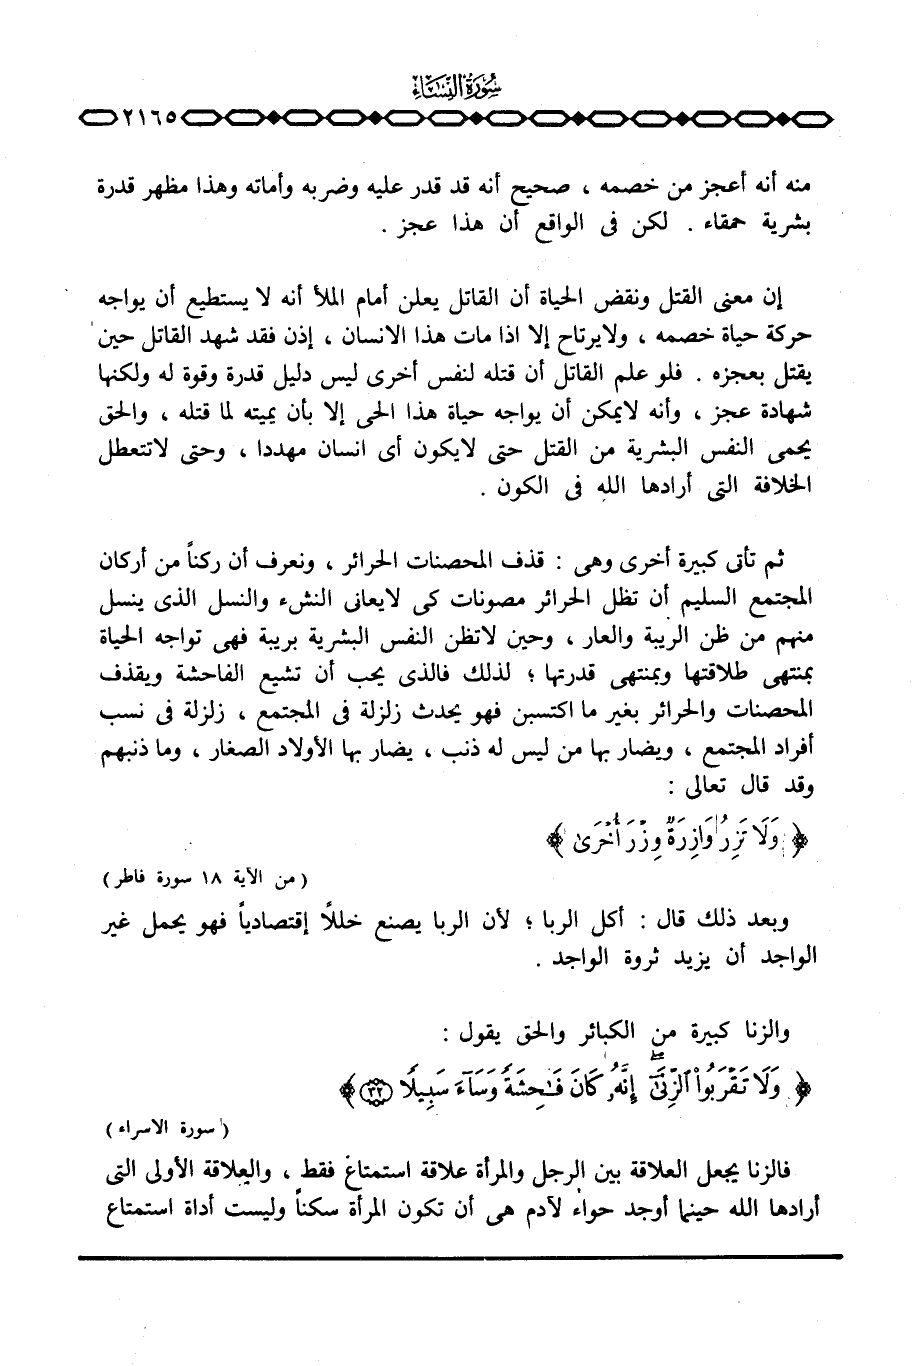 سورة النساء
٢١٦٥
منه أنه أعجز من خصمه ، صحيح أنه قد قدر عليه وضربه وأماته وهذا مظهر قدرة
بشرية حمقاء . لكن فى الواقع أن هذا عجز .
إن معنى القتل ونقض الحياة أن القاتل يعلن أمام الملأ أنه لا يستطيع أن يواجه
حركة حياة خصمه ، ولايرتاح إلا اذا مات هذا الانسان ، إذن فقد شهد القاتل حين
يقتل بعجزه . فلو علم القاتل أن قتله لنفس أخرى ليس دليل قدرة وقوة له ولكنها
شهادة عجز ، وأنه لايمكن أن يواجه حياة هذا الحى إلا بأن يميته لما قتله ، والحق
يحمى النفس البشرية من القتل حتى لايكون أى انسان مهددا ، وحتى لاتتعطل
الخلافة التى أرادها الله فى الكون .
ثم تأتى كبيرة أخرى وهى : قذف المحصنات الحرائر ، ونعرف أن ركناً من أركان
المجتمع السليم أن تظل الحرائر مصونات كى لايعانى النشء والنسل الذى ينسل
منهم من ظن الريبة والعار ، وحين لاتظن النفس البشرية بريبة فهى تواجه الحياة
بمنتهى طلاقتها وبمنتهى قدرتها ؛ لذلك فالذى يحب أن تشيع الفاحشة ويقذف
المحصنات والحرائر بغير ما اكتسبن فهو يحدث زلزلة فى المجتمع ، زلزلة فى نسب
أفراد المجتمع ، ويضار بها من ليس له ذنب ، يضار بها الأولاد الصغار ، وما ذنبهم
وقد قال تعالى :
﴿ وَلَا تَزِرُ وَازِرَةٌ وِزْرَ أُخْرَىٰ ﴾
( من الآية ١٨ سورة فاطر )
وبعد ذلك قال : أكل الربا ؛ لأن الربا يصنع خللاً إقتصادياً فهو يحمل غير
الواجد أن يزيد ثروة الواجد .
والزنا كبيرة من الكبائر والحق يقول :
﴿ وَلَا تَقْرَبُوا۟ ٱلزِّنَىٰٓ إِنَّهُۥ كَانَ فَـٰحِشَةً وَسَآءَ سَبِيلًا ٣٢ ﴾
( سورة الاسراء )
فالزنا يجعل العلاقة بين الرجل والمرأة علاقة استمتاع فقط ، والعلاقة الأولى التى
أرادها الله حينما أوجد حواء لآدم هى أن تكون المرأة سكناً وليست أداة استمتاع